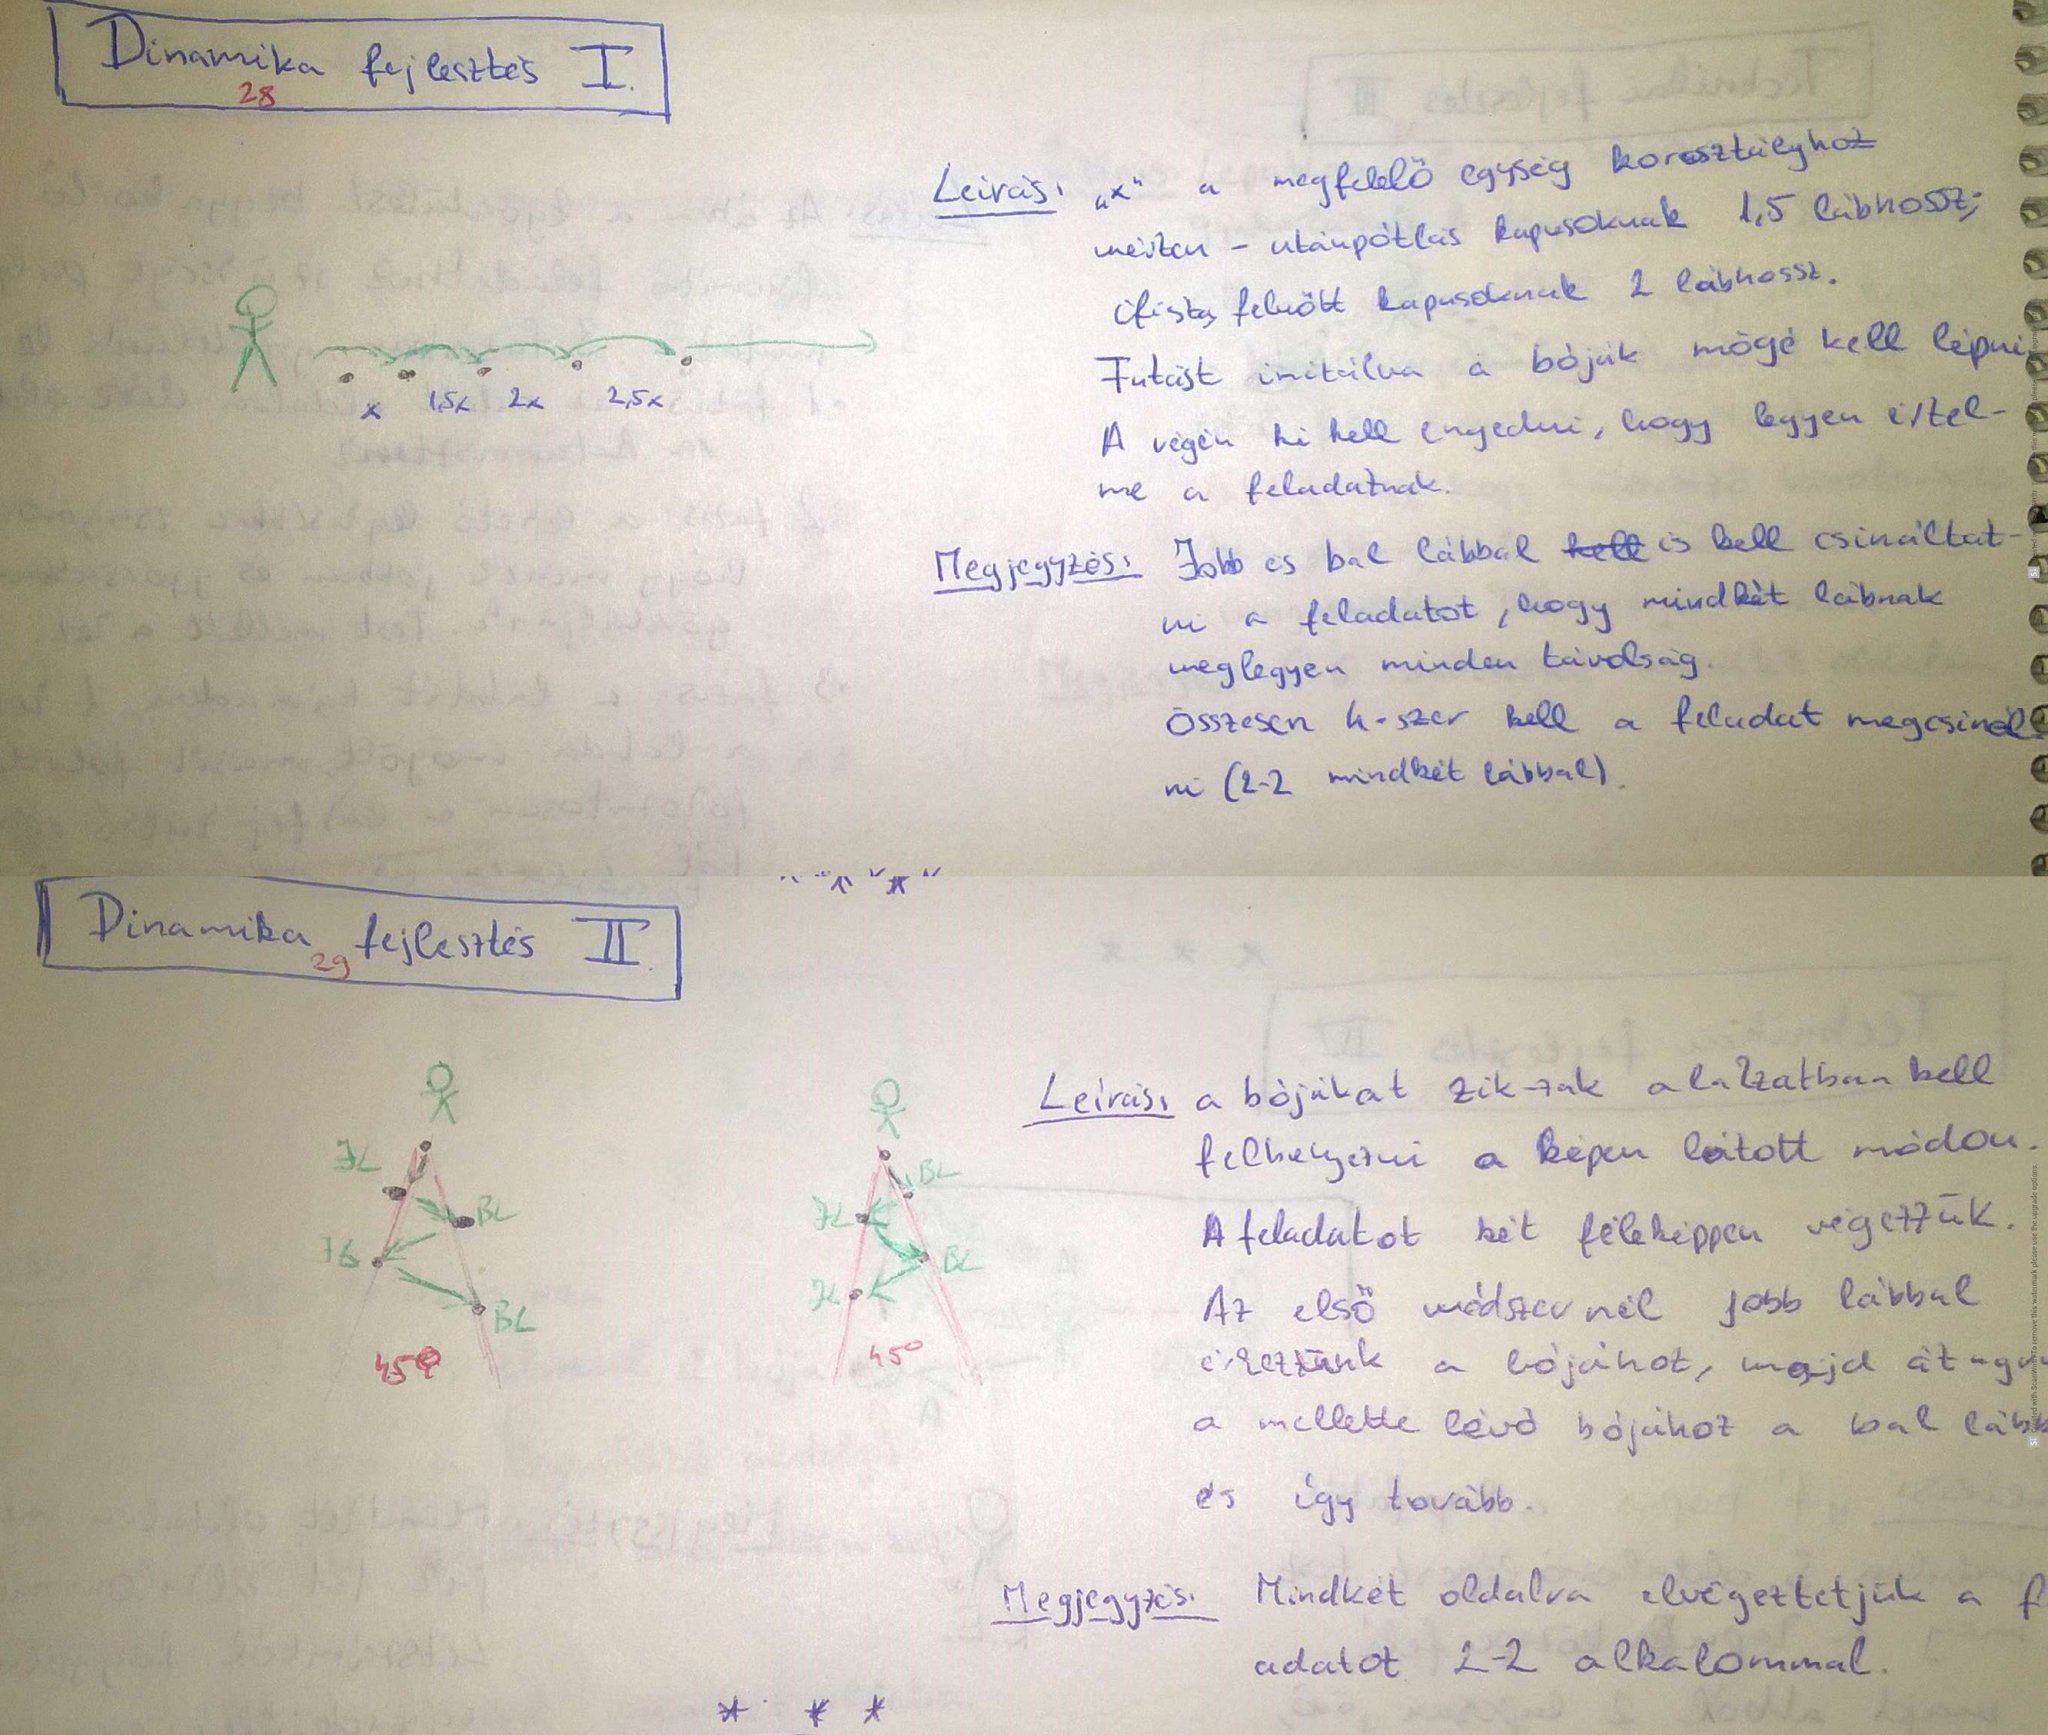 Dinamika fejlesztés I.
28
Leírás: „x" a megfelelő egység korosztályhoz
mérten - utánpótlás kapusoknak 1,5 lábhossz;
ifista, felnőtt kapusoknak 2 lábhossz.
Futást imitálva a bóják mögé kell lépni
A végén ki kell engedni, hogy legyen értel-
me a feladatnak.
x 1,5x 2x 2,5x
Megjegyzés: Jobb és bal lábbal kell is kell csináltat-
ni a feladatot, hogy mindkét lábnak
meglegyen minden távolság.
Összesen 4-szer kell a feladat megcsinál
ni (2-2 mindkét lábbal).
Dinamika fejlesztés II.
29
Leírás: a bójákat zik-zak alakzatban kell
felhelyezni a képen látott módon.
A feladatot két féleképpen végezzük.
Az első módszernél jobb lábbal
érkezünk a bójához, majd
a mellette lévő bójához a bal
és így tovább.
JL BL
JL BL
45°
BL
JL BL
JL
45°
Megjegyzés: Mindkét oldalra elvégeztetjük a f
adatot 2-2 alkalommal.
* * *